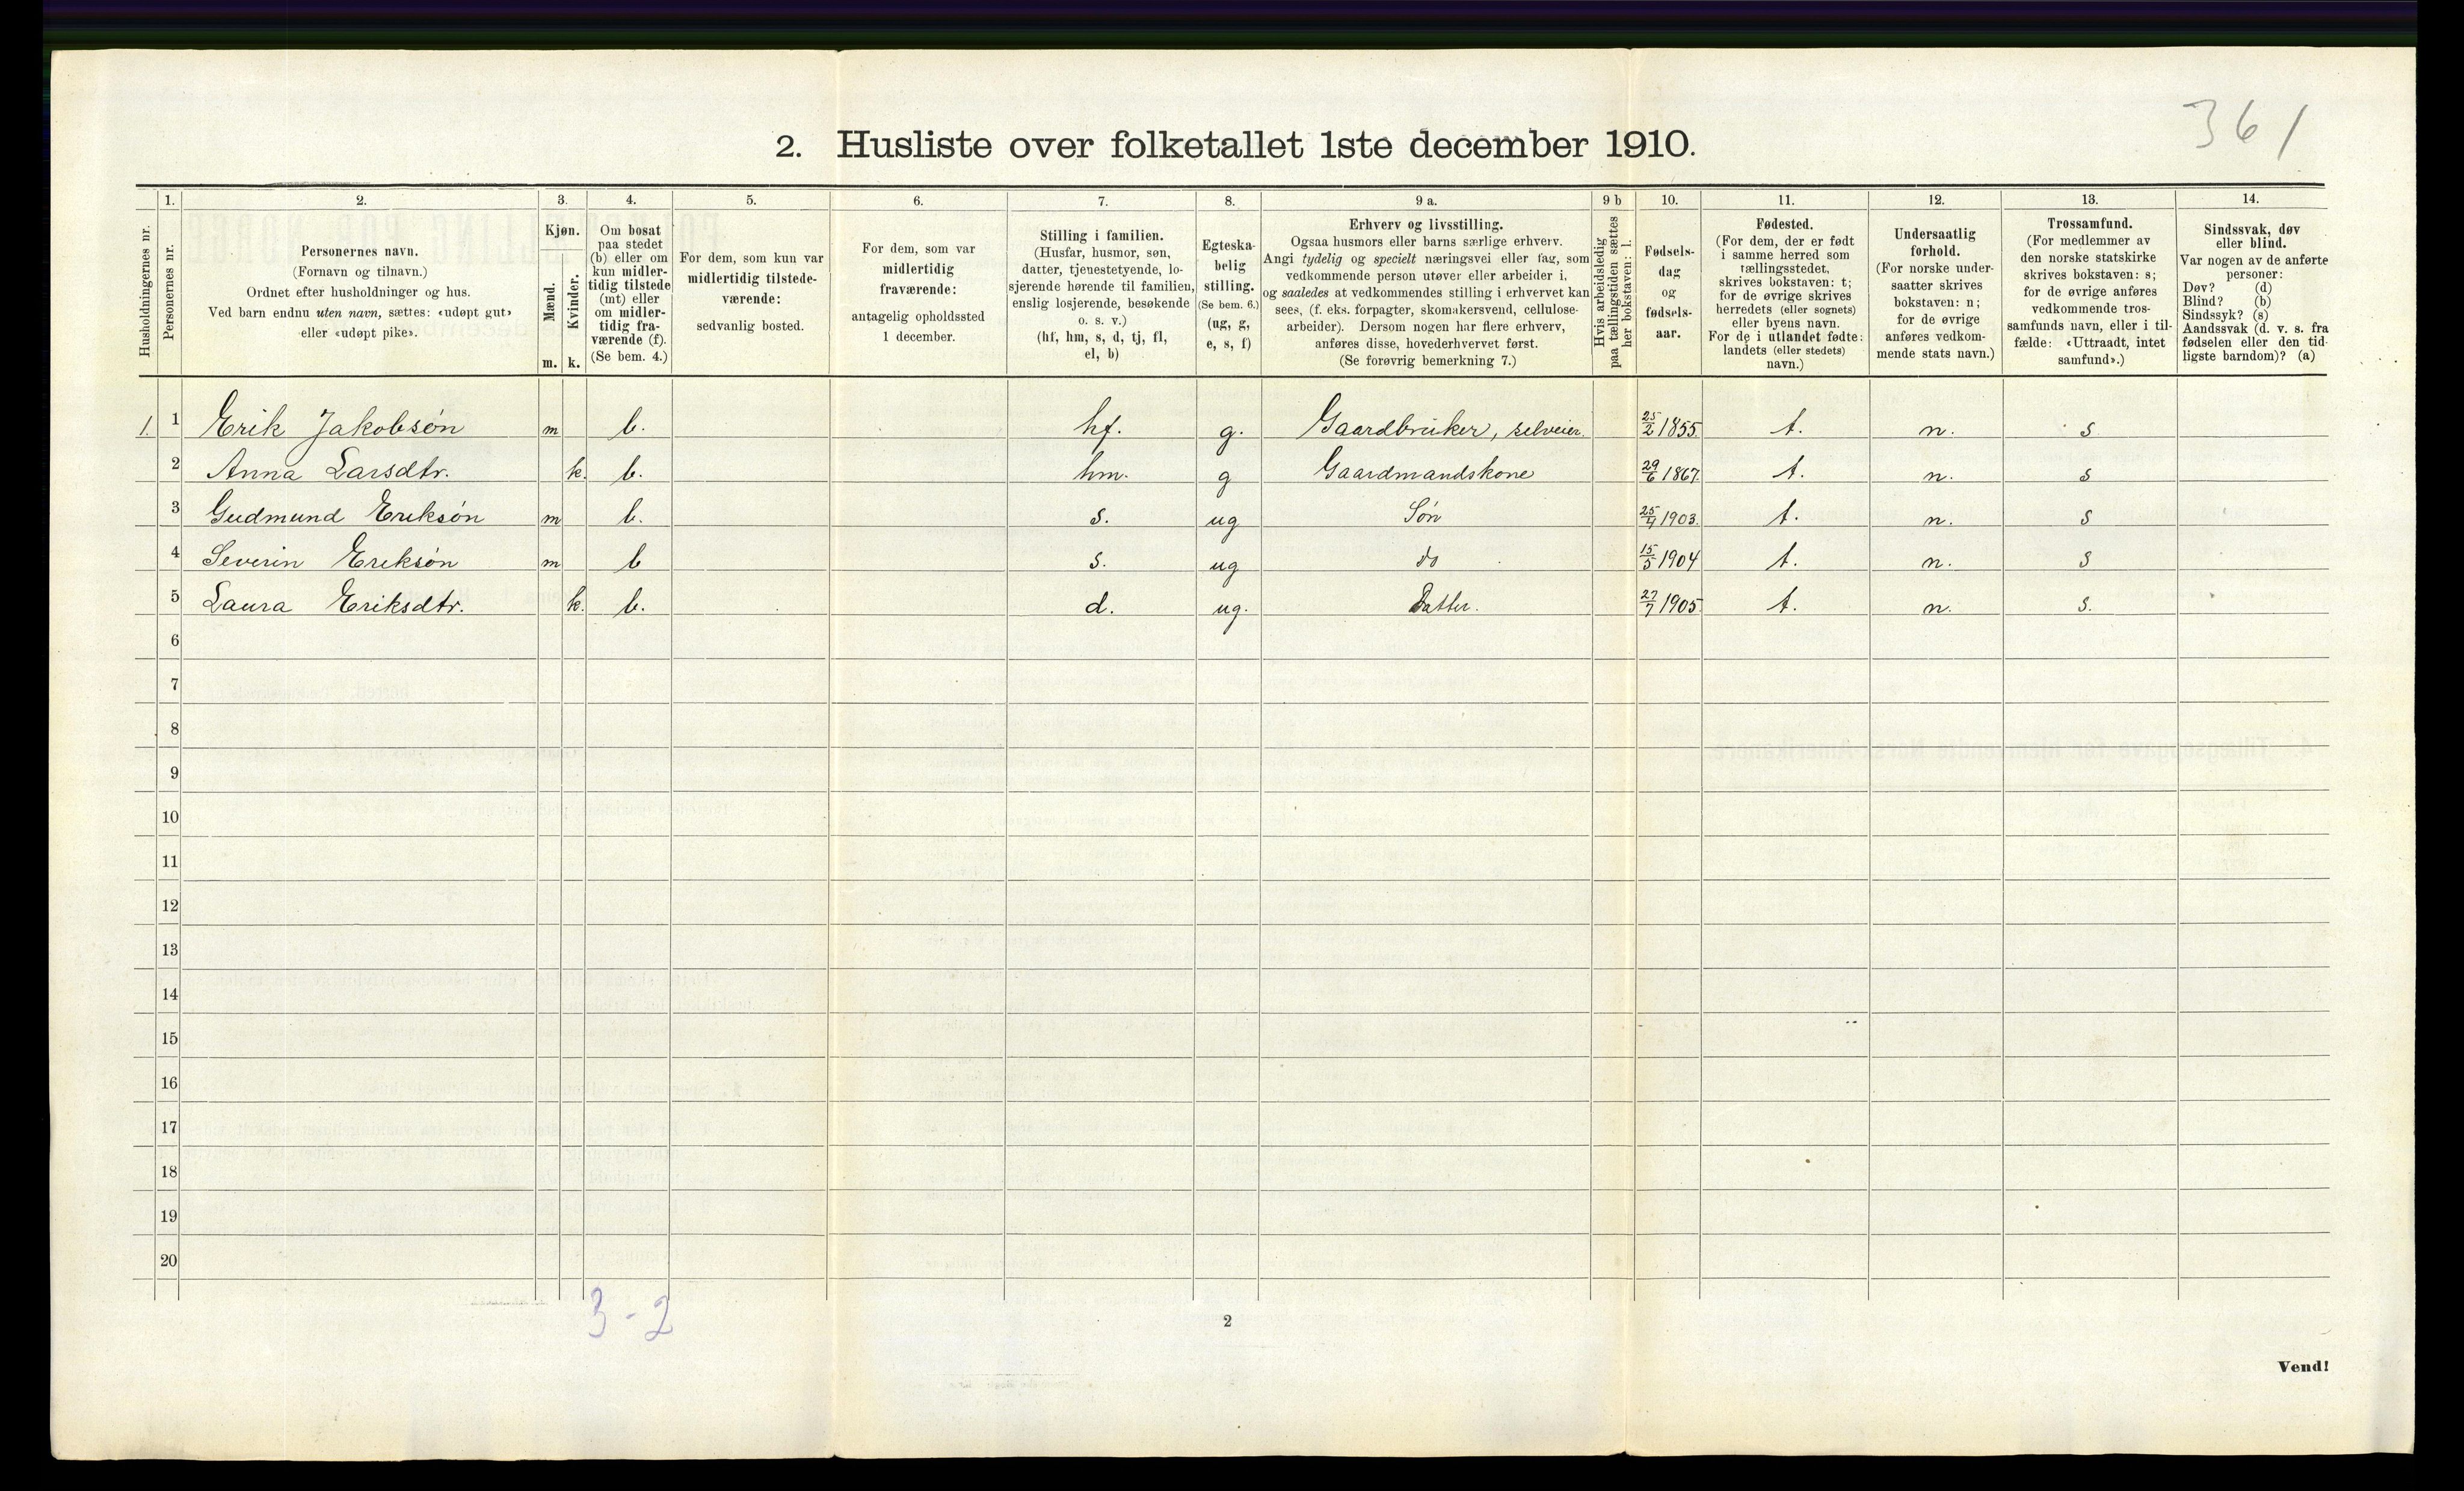 361
2. Husliste over folketallet 1ste december 1910.
Husholdningernes nr.
1.
Personernes nr.
2.
Personernes navn.
(Fornavn og tilnavn.)
Ordnet efter husholdninger og hus.
Ved barn endnu uten navn, sættes: «udøpt gut»
eller «udøpt pike».
3.
Kjøn.
Mænd.
m.
Kvinder.
k.
4.
Om bosat
paa stedet
(b) eller om
kun midler-
tidig tilstede
(mt) eller
om midler-
tidig fra-
værende (f).
(Se bem. 4.)
5.
For dem, som kun var
midlertidig tilstede-
værende:
sedvanlig bosted.
6.
For dem, som var
midlertidig
fraværende:
antagelig opholdssted
1 december.
7.
Stilling i familien.
(Husfar, husmor, søn,
datter, tjenestetyende, lo-
sjerende hørende til familien,
enslig losjerende, besøkende
o. s. v.)
(hf, hm, s, d, tj, fl,
el, b)
8.
Egteska-
belig
stilling.
(Se bem. 6.)
(ug, g,
e, s, f)
9 a.
Erhverv og livsstilling.
Ogsaa husmors eller barns særlige erhverv.
Angi tydelig og specielt næringsvei eller fag, som
vedkommende person utøver eller arbeider i,
og saaledes at vedkommendes stilling i erhvervet kan
sees, (f. eks. forpagter, skomakersvend, cellulose-
arbeider). Dersom nogen har flere erhverv,
anføres disse, hovederhvervet først.
(Se forøvrig bemerkning 7.)
9 b
Hvis arbeidsledig
paa tællingstiden sættes
her bokstaven: l.
10.
Fødsels-
dag
og
fødsels-
aar.
11.
Fødested.
(For dem, der er født
i samme herred som
tællingsstedet,
skrives bokstaven: t;
for de øvrige skrives
herredets (eller sognets)
eller byens navn.
For de i utlandet fødte:
landets (eller stedets)
navn.)
12.
Undersaatlig
forhold.
(For norske under-
saatter skrives
bokstaven: n;
for de øvrige
anføres vedkom-
mende stats navn.)
13.
Trossamfund.
(For medlemmer av
den norske statskirke
skrives bokstaven: s;
for de øvrige anføres
vedkommende tros-
samfunds navn, eller i til-
fælde: «Uttraadt, intet
samfund».)
14.
Sindssvak, døv
eller blind.
Var nogen av de anførte
personer:
Døv? (d)
Blind? (b)
Sindssyk? (s)
Aandssvak (d. v. s. fra
fødselen eller den tid-
ligste barndom)? (a)
1. 1 Erik Jakobsøn m b. hf. g. Gaardbruker, selveier. 25/2 1855. t. n. s
2 Anna Larsdtr. k. b. hm. g Gaardmandskone 29/6 1867. t. n. s
3 Gudmund Eriksøn m b. s. ug Søn 25/4 1903. t. n. s
4 Severin Eriksøn m b s. ug do 15/5 1904 t. n. s
5 Laura Eriksdtr. k. b. d. ug. Datter. 27/7 1905. t. n. s.
6
7
8
9
10
11
12
13
14
15
16
17
18
19
20
3-2
2
Vend!